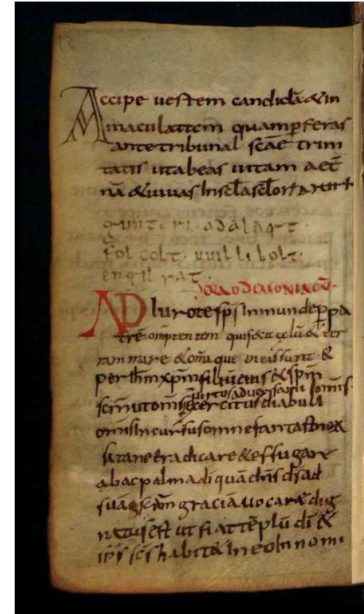 Accipe uestem candidā & in
maculattam quam perferas
ante tribunal scāe trini
tatis ut abeas uitam aet̄
nā & uiuas in scła scłor
gunteri. adalaqt.
folcolt. uuillibolt.
engilrat.
ADIuro te sp̄s inmunde per pa
trē omnipotentem qui fecit celū & ter
ram mare & om̄a que in eis sunt. &
per ih̄m xp̄m filiū eius & sp̄m
sc̄m ut omnis
exercitus diaboli
omnis incursus omne fantasma
satane eradicare & effugare
ab ac palma di quā dn̄s ad
suā scā̄m graciā uocare dig
natus est ut fiat tēplū di &
sp̄s sc̄s habit& in eo in nomi